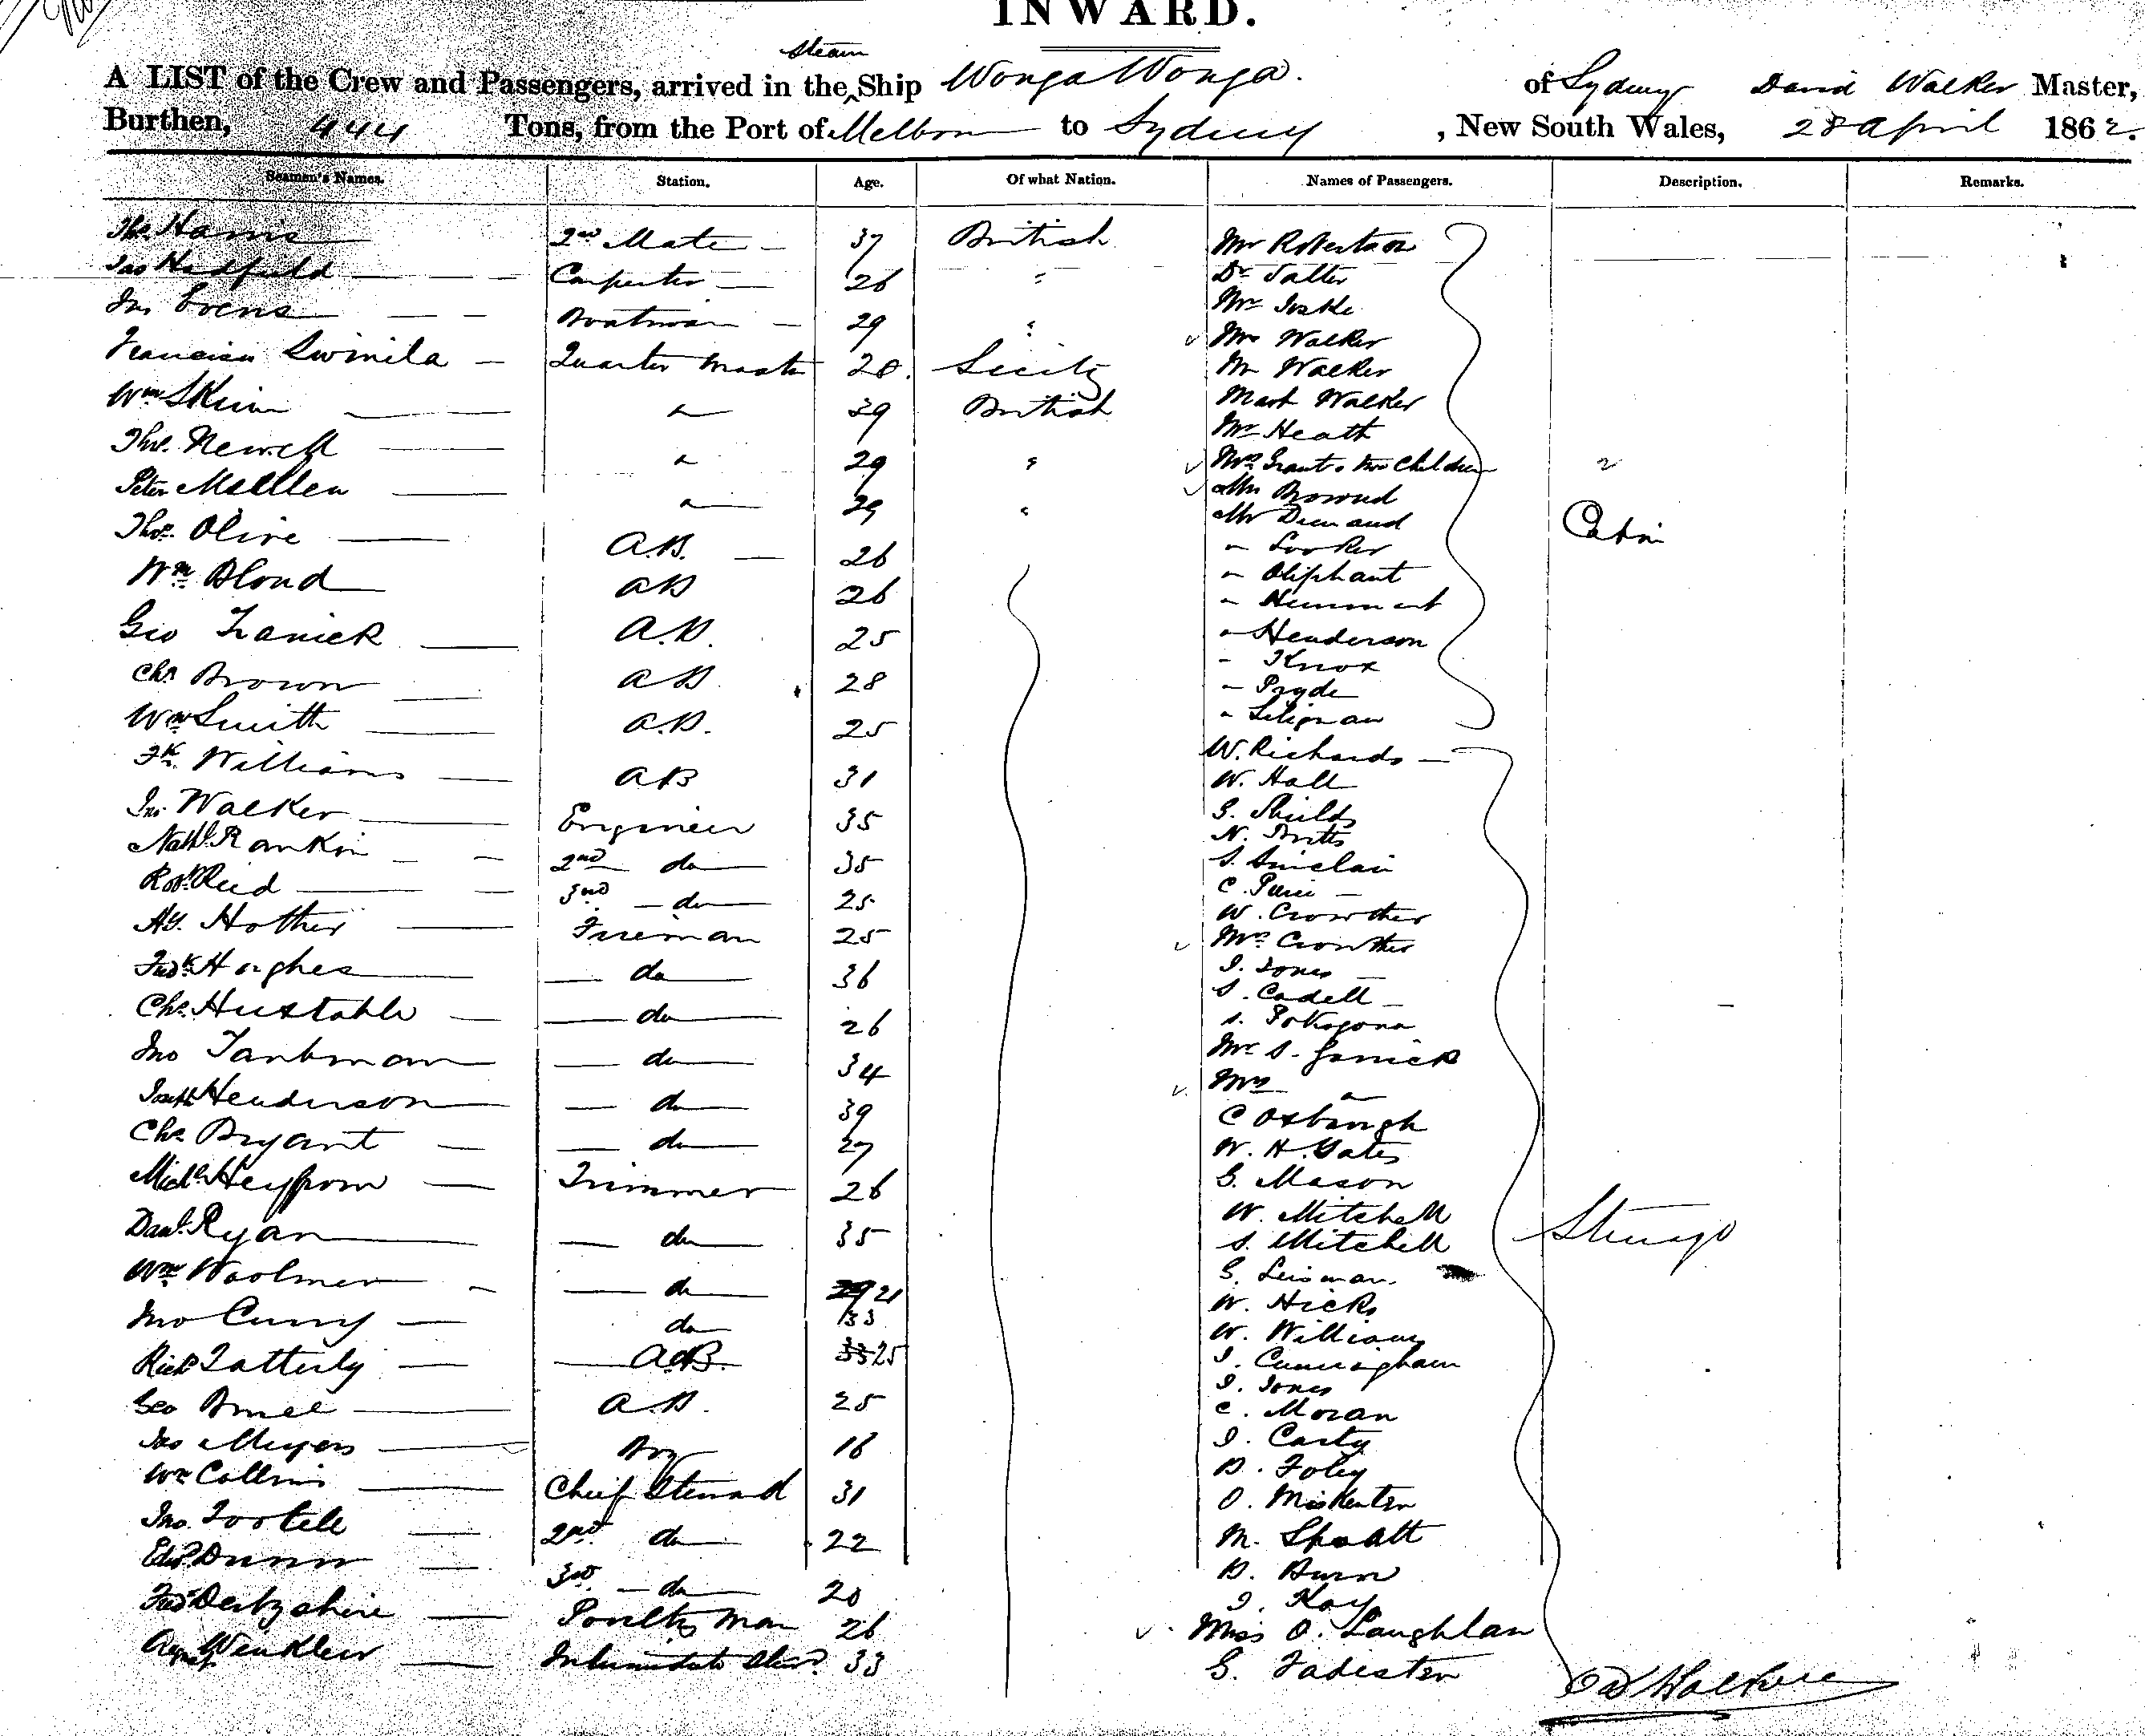 INWARD.
steam
A LIST of the Crew and Passengers, arrived in the ^ Ship Wonga Wonga. of Sydney David Walker Master,
Burthen, 444 Tons, from the Port of Melbourne to Sydney, New South Wales, 28 April 1862.
Seamen's Names. Station. Age. Of what Nation. Names of Passengers. Description. Remarks.
Thos. Harris 2nd Mate 37 British Mr Robertson
Jas Hadfield Carpenter 26 " Dr Salter
Jno Evens Boatswain 29 " Mr
Mrs Walker
Quarter Master 28. Sicily Mr Walker
Wm " 39 British Mast Walker
Mr Heath
Thos. Newell " 29 " Mrs Grant & two Children
Peter " 29 " Mrs
Mr
Thos. Olive A.B. 26 " Looker Cabin
Wm Blond AB 26 " Oliphant
"
Geo A.B. 25 " Henderson
" Knox
Chs Brown AB 28 " Pryde
Wm Smith A.B. 25 "
Fk. Williams AB 31 W. Richards
W. Hall
Jno. Walker Engineer 35 G. Shields
Nathl Rankin 2nd do 35 N.
S. Sinclair
Robt Reid 3rd do 25 C.
Hy. Hother Fireman 25 W. Crowther
Mrs Crowther
Fredk Hughes do 36 J. Jones
S. Cadell
Chs Huxtable do 26 S.
Jno Tantman do 34 Mr S. Garrick
Mrs "
Joseph Henderson do 39 C Oxbrough
Chs Bryant do 27 W. H. Gates
Michl Trimmer 26 G. Mason
W. Mitchell
Danl Ryan do 35 S. Mitchell Steerage
Wm Woolmer do 29 21 G.
W. Hicks
Jno Curry do 33 W. Williams
Richd Tatterly A.B. 33 25 J. Cunningham
J. Jones
Geo A.B. 25 C. Moran
Jas Meyers Boy 16 J. Carty
Wm Collins Chief Steward 31 B. Foley
O.
Jno. Tootell 2nd do 22 M.
Edwd Dunn 3rd do 20 B. Burn
J. Kay
Fred Derbyshire Poultry Man 26 Miss O. Laughlan
August Winkler Intermediate Stewd 33 G.
Dd Walker